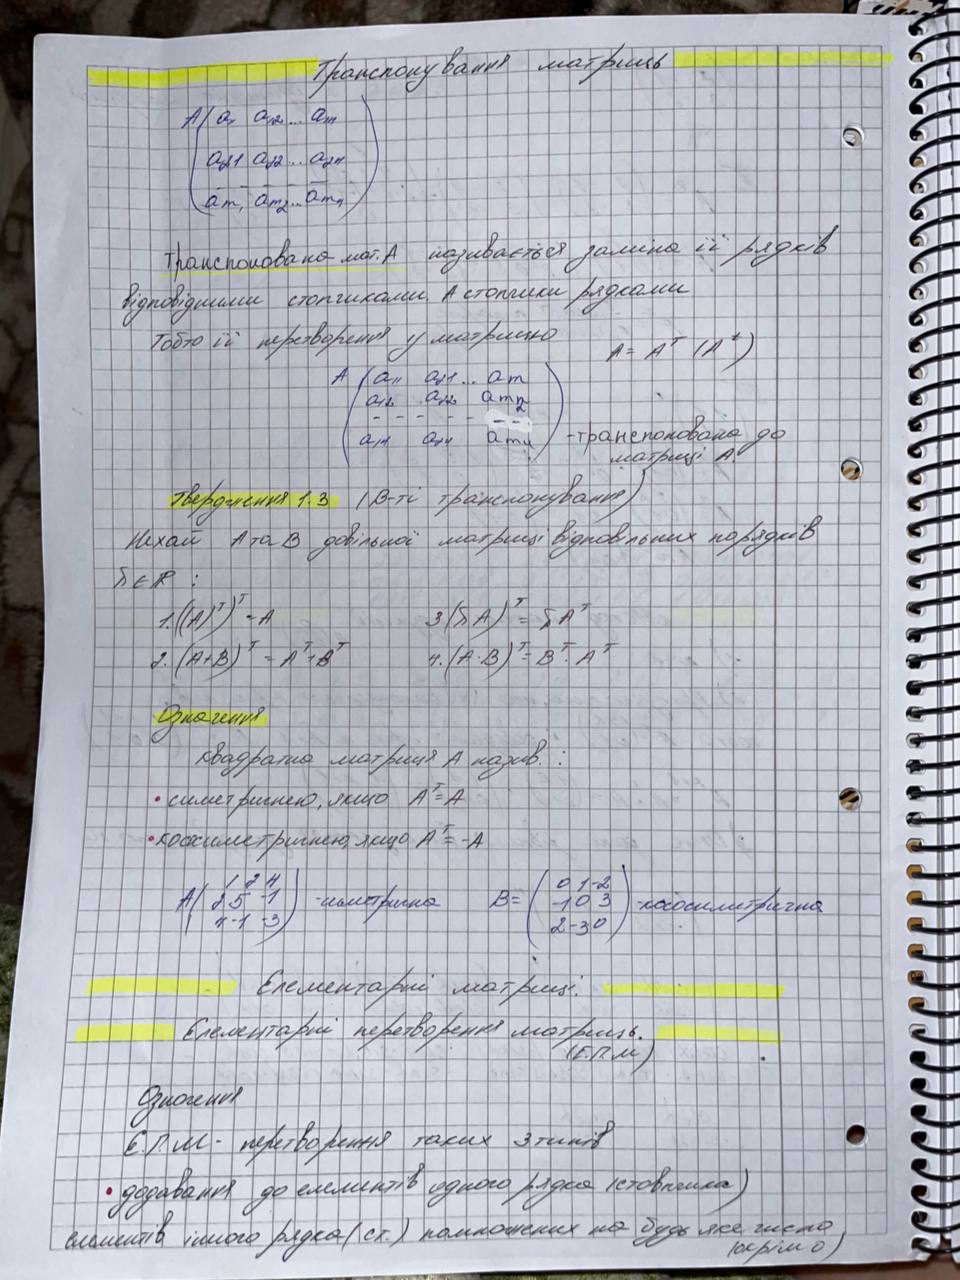 Транспонування матриць
A( a₁ a₁₂ ... a₁ₙ
a₂₁ a₂₂ ... a₂ₙ
- - - - - -
aₘ₁ aₘ₂ ... aₘₙ )
Транспонована мат. A називається заміна її рядків
відповідними стопчиками. А стопчики рядками
Тобто її перетворення у матрицю A = Aᵀ (Aᵗ)
A ( a₁₁ a₂₁ ... aₘ
a₁₂ a₂₂ aₘ₂
- - - - - - -
a₁ₙ a₂ₙ aₘₙ ) - транспонована до
матриці A.
Твердження 1.3 (В-ті транспонування)
Нехай A та B довільної матриці відповільних порядків
λ ∈ R :
1. ((A)ᵀ)ᵀ = A 3 (λA)ᵀ = λAᵀ
2. (A+B)ᵀ = Aᵀ+Bᵀ 4. (A·B)ᵀ = Bᵀ · Aᵀ
Означення
Квадратна матриця A назив. :
• симетричною, якщо Aᵀ = A
• кососиметричною, якщо Aᵀ = -A
A( 1 2 4
2 5 -1
4 -1 -3 ) - симетрична B = ( 0 1 -2
-1 0 3
2 -3 0 ) - кососиметрична
Елементарні матриці.
Елементарні перетворення матриць.
(Е.П.М)
Означення
Е.П.М - перетворення таких 3 типів
• додавання до елементів одного рядка (стовпчика)
елементів іншого рядка (ст.) помножених на будь яке число
(окрім 0)